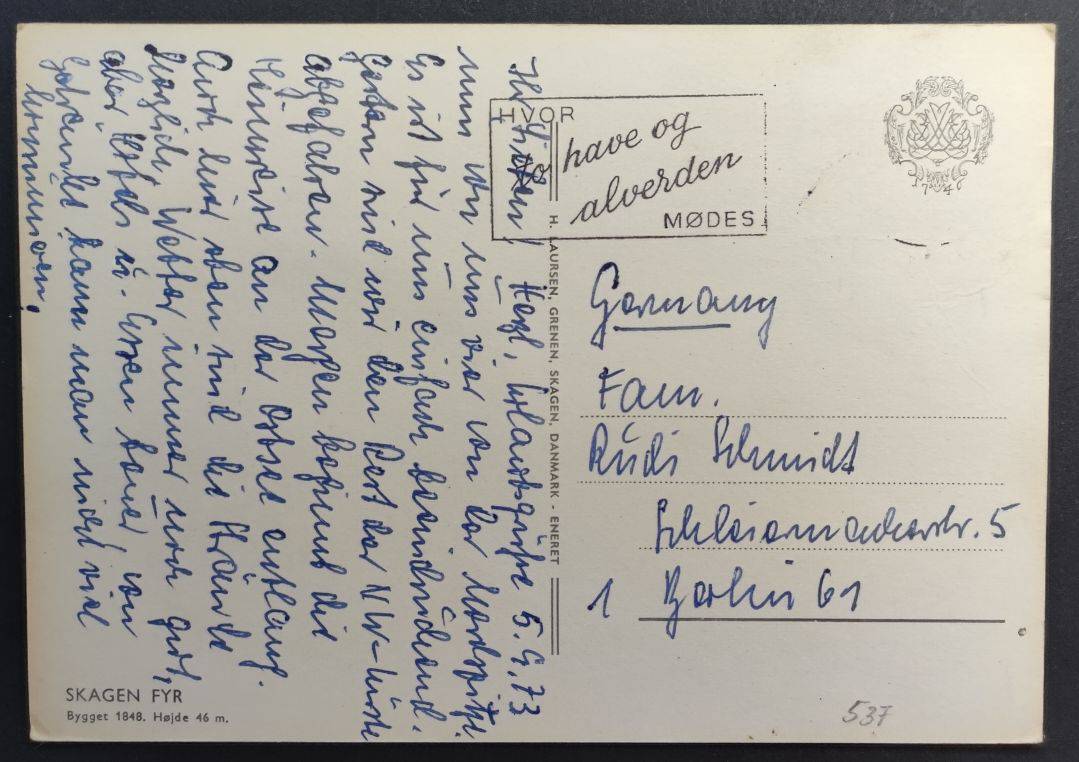 HVOR
to have og
alverden
MØDES
1746
Germany
Fam.
Rudi Schmidt
Schleiermacherstr. 5
1 Berlin 61
H. LAURSEN, GRENEN, SKAGEN, DANMARK - ENERET
Ihr Lieben! Herzl. Urlaubsgrüße 5.9.73
nun von uns vier von der Nordspitze.
Es ist für uns einfach beeindruckend.
Gestern sind wir den Rest der NW-Küste
abgefahren. Morgen beginnt die
Heimreise an der Ostsee entlang.
Auch hier oben sind die Strände
herrlich, Wetter immer noch gut,
aber Essen teuer, von
Getränke kann man nicht viel
SKAGEN FYR
Bygget 1848. Højde 46 m.
537